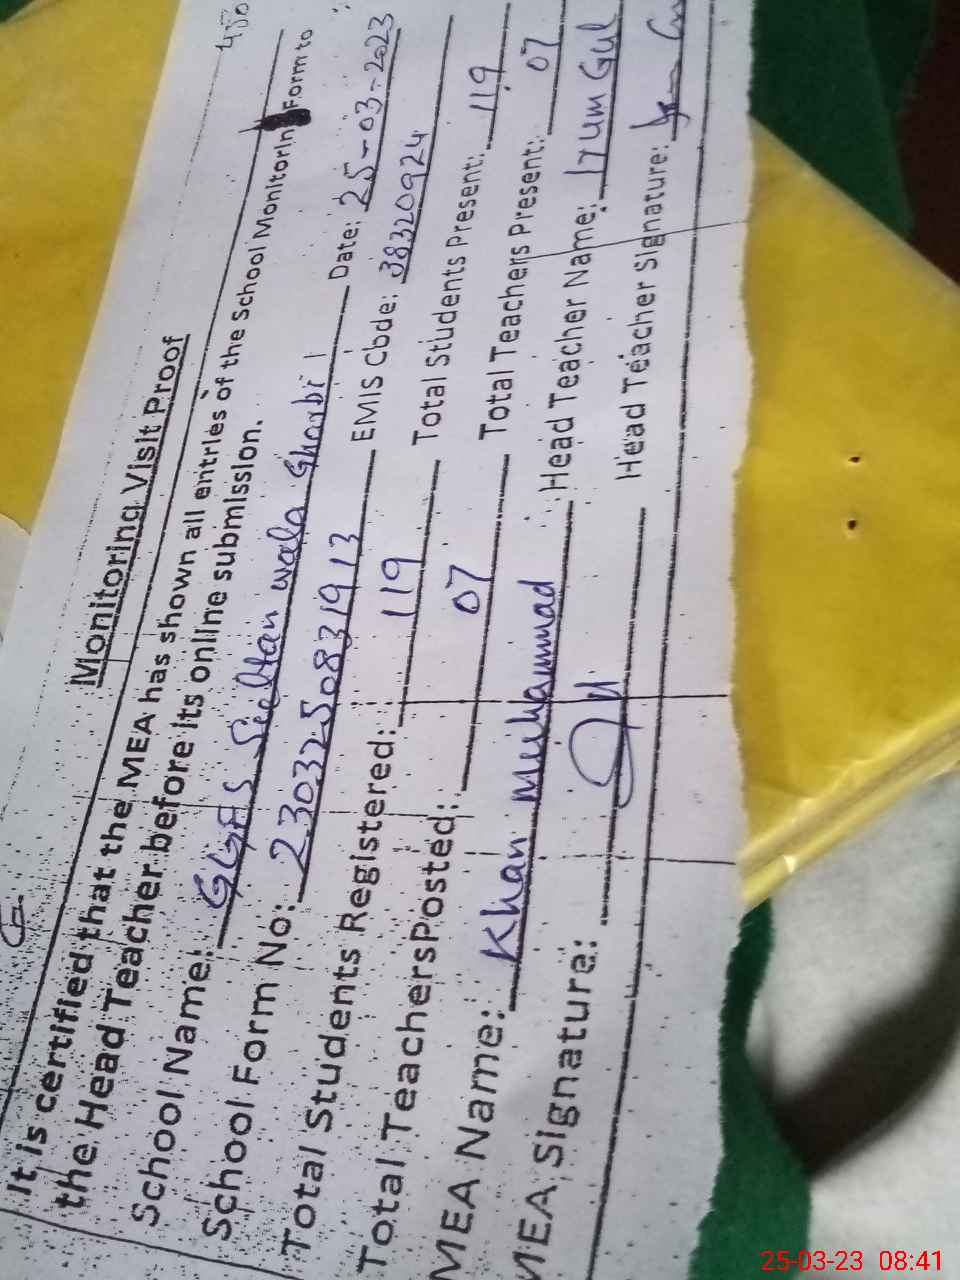 Monitoring Visit Proof
It is certified that the MEA has shown all entries of the School Monitorin Form to
the Head Teacher before its online submission.
School Name: GGPS Sultan wala Gharbi Date: 25-03-2023
School Form No: 2303250831913 EMIS Code: 38320924
Total Students Registered: 119 Total Students Present: 119
Total Teachers Posted: 07 Total Teachers Present: 07
MEA Name: Khan Muhammad Head Teacher Name: Irum Gul
MEA Signature: Head Teacher Signature:
25-03-23 08:41